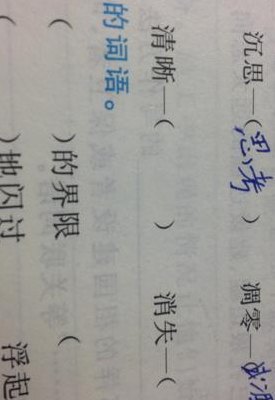 沉思—(思考) 凋零—(
清晰—( ) 消失—(
的词语。
( )的界限 (
( )地闪过 浮起